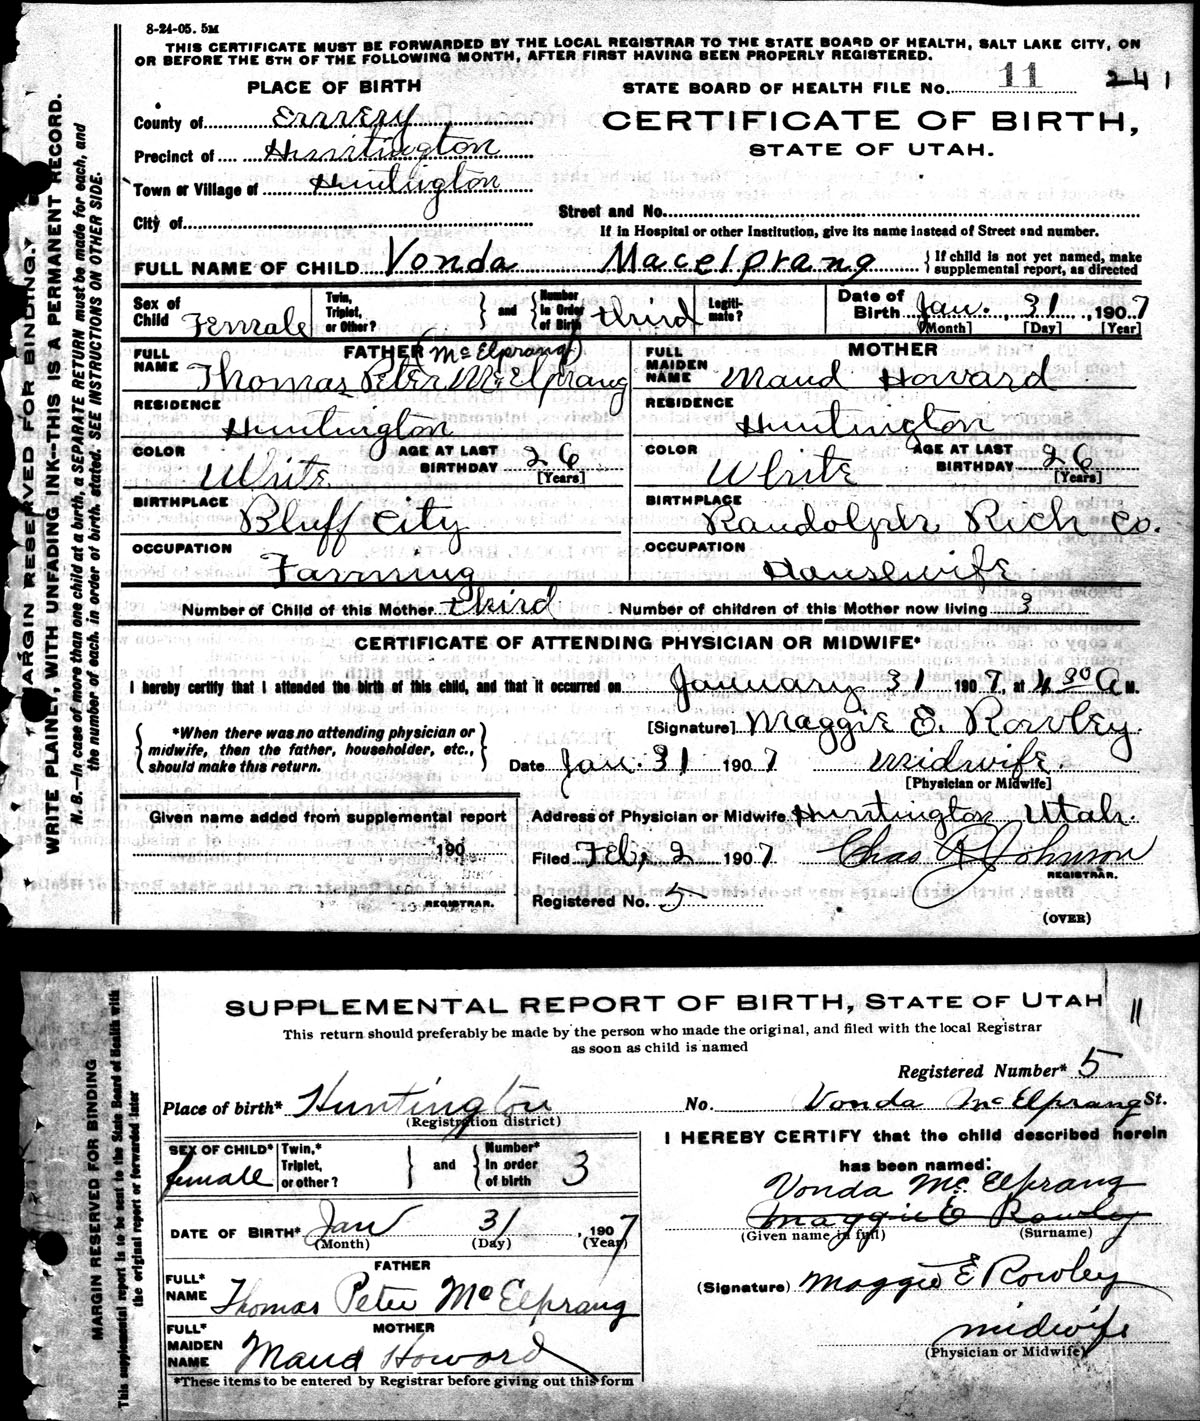 8-24-05. 5M
THIS CERTIFICATE MUST BE FORWARDED BY THE LOCAL REGISTRAR TO THE STATE BOARD OF HEALTH, SALT LAKE CITY, ON
OR BEFORE THE 5TH OF THE FOLLOWING MONTH, AFTER FIRST HAVING BEEN PROPERLY REGISTERED.
PLACE OF BIRTH
STATE BOARD OF HEALTH FILE No. 11 241
County of Emery
CERTIFICATE OF BIRTH,
STATE OF UTAH.
Precinct of Huntington
Town or Village of Huntington
City of
Street and No.
If in Hospital or other Institution, give its name instead of Street and number.
FULL NAME OF CHILD Vonda Macelprang { If child is not yet named, make supplemental report, as directed
Sex of Child Female Twin, Triplet, or Other? } and { Number in Order of Birth third Legiti- mate? Date of Birth Jan. 31, 1907
[Month] [Day] [Year]
FATHER (McElprang)
FULL NAME Thomas Peter McElprang
RESIDENCE
Huntington
COLOR White AGE AT LAST BIRTHDAY 26 [Years]
BIRTHPLACE
Bluff City
OCCUPATION
Farming
MOTHER
FULL MAIDEN NAME Maud Howard
RESIDENCE
Huntington
COLOR White AGE AT LAST BIRTHDAY 26 [Years]
BIRTHPLACE
Randolph Rich Co.
OCCUPATION
Housewife
Number of Child of this Mother third Number of children of this Mother now living 3
CERTIFICATE OF ATTENDING PHYSICIAN OR MIDWIFE*
I hereby certify that I attended the birth of this child, and that it occurred on January 31 1907, at 4 30 A M.
{ *When there was no attending physician or midwife, then the father, householder, etc., should make this return. }
[Signature] Maggie E. Rowley
Date Jan. 31 1907 Midwife.
[Physician or Midwife]
Given name added from supplemental report
190
REGISTRAR.
Address of Physician or Midwife Huntington Utah.
Filed Feb, 2 1907 Chas A Johnson
REGISTRAR.
Registered No. 5
(OVER)
MARGIN RESERVED FOR BINDING.
WRITE PLAINLY, WITH UNFADING INK—THIS IS A PERMANENT RECORD.
N. B.—In case of more than one child at a birth, a SEPARATE RETURN must be made for each, and
the number of each, in order of birth, stated. SEE INSTRUCTIONS ON OTHER SIDE.
SUPPLEMENTAL REPORT OF BIRTH, STATE OF UTAH 11
This return should preferably be made by the person who made the original, and filed with the local Registrar
as soon as child is named
Registered Number* 5
Place of birth* Huntington No. Vonda McElprang St.
(Registration district)
SEX OF CHILD* female Twin,* Triplet, or other? } and { Number* in order of birth 3
DATE OF BIRTH* Jan 31, 1907
(Month) (Day) (Year)
FATHER
FULL* NAME Thomas Peter McElprang
MOTHER
FULL* MAIDEN NAME Maud Howard
*These items to be entered by Registrar before giving out this form
I HEREBY CERTIFY that the child described herein
has been named:
Vonda McElprang
Maggie E Rowley
(Given name in full) (Surname)
(Signature) Maggie E Rowley
midwife
(Physician or Midwife)
MARGIN RESERVED FOR BINDING
This supplemental report is to be sent to the State Board of Health with
the original report or forwarded later